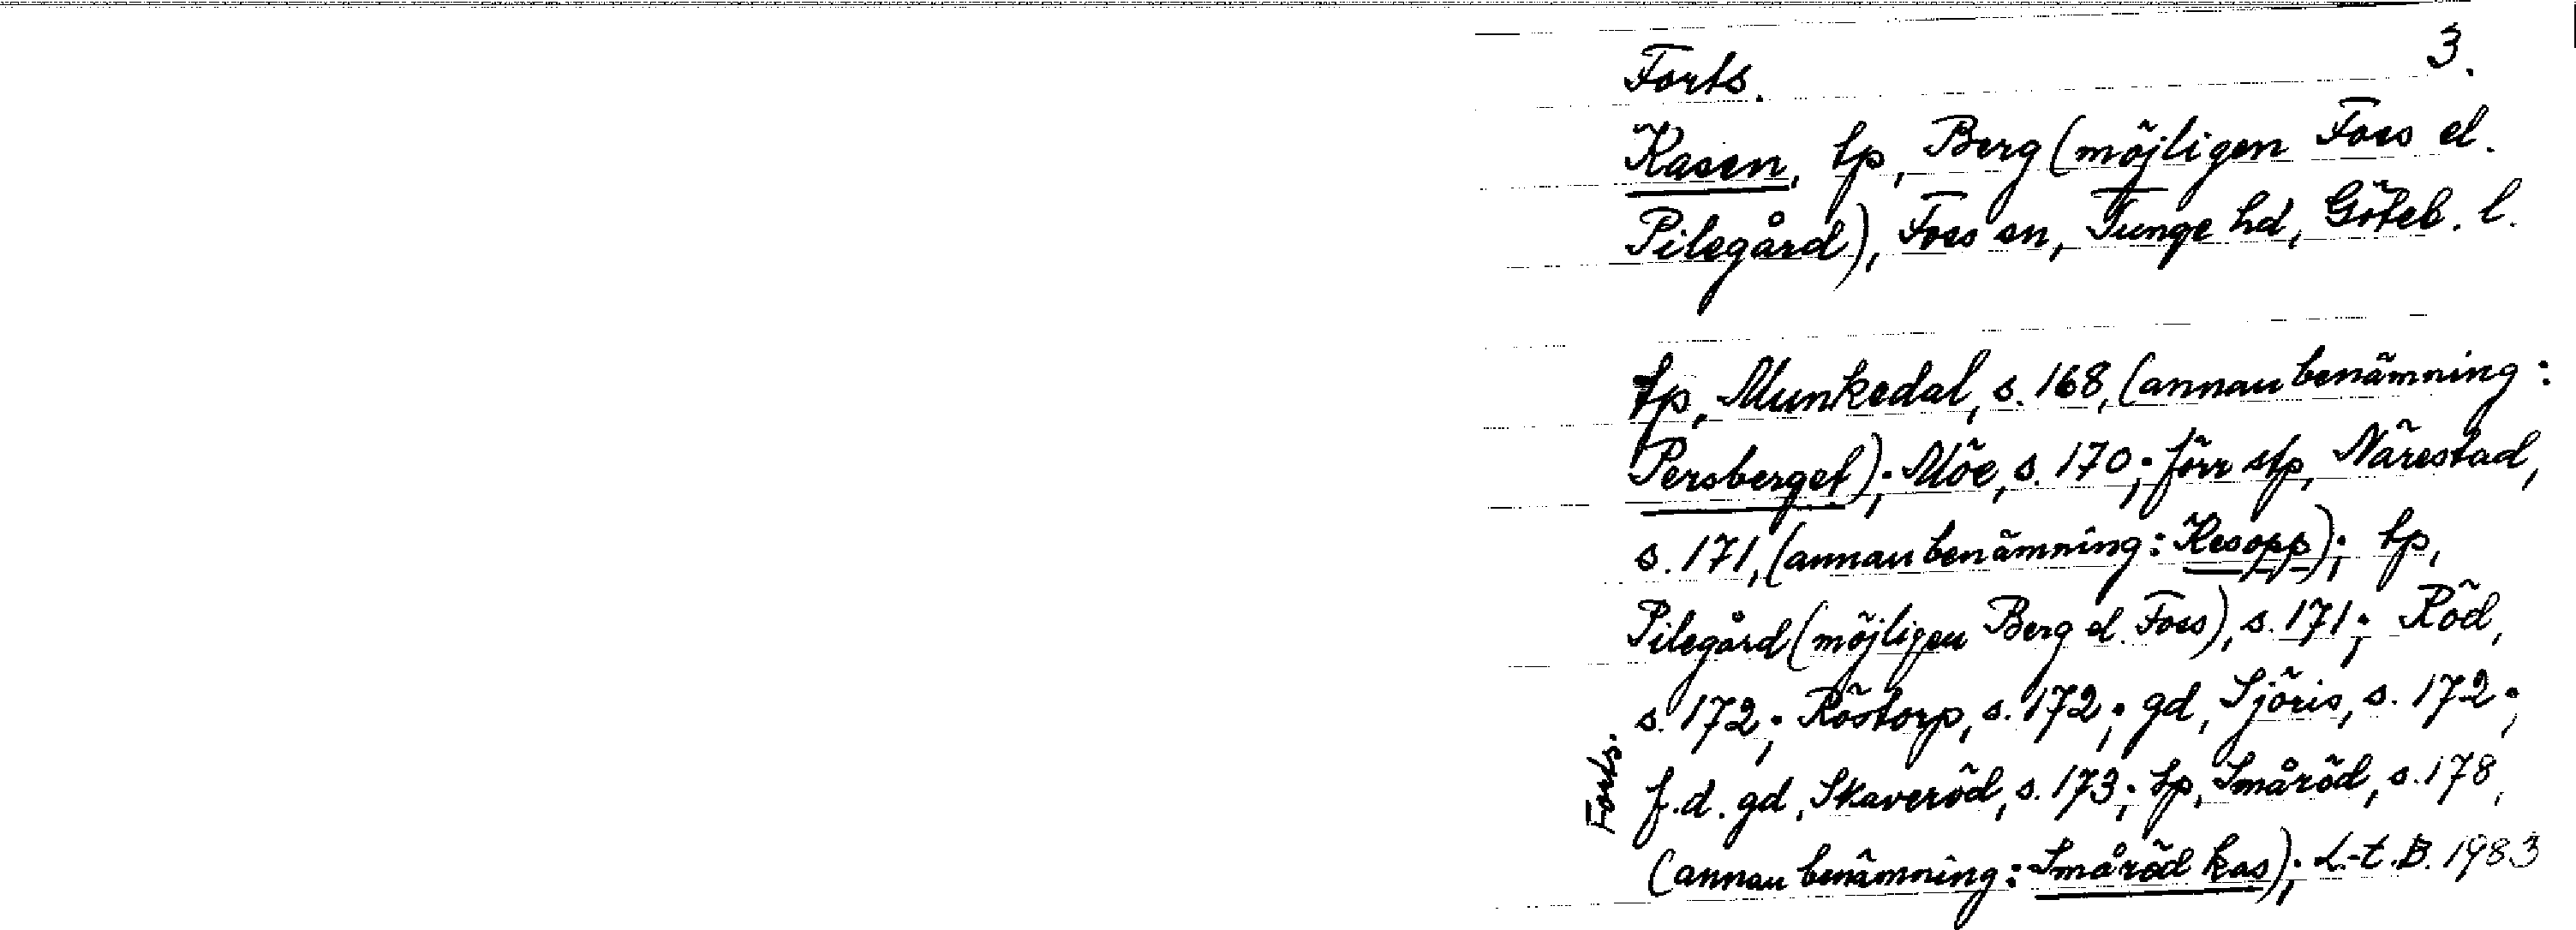 3.
Forts.
Kasen, tp, Berg (möjligen Foss el.
Pilegård), Foss sn, Tunge hd, Göteb. l.
tp, Munkedal, s. 168, (annan benämning:
Persberget); Möe, s. 170; förr stp, Närestad,
s. 171, (annan benämning: Kesopp); tp,
Pilegård (möjligen Berg el. Foss), s. 171; Röd,
s. 172; Röstorp, s. 172; gd, Sjöris, s. 172;
f.d. gd, Skaveröd, s. 173; tp, Småröd, s. 178,
(annan benämning: Småröd kas); L-t.B. 1983
Forts.